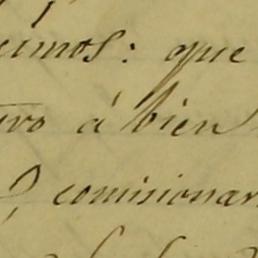 cimos: que
tuvo á bien
comisionar